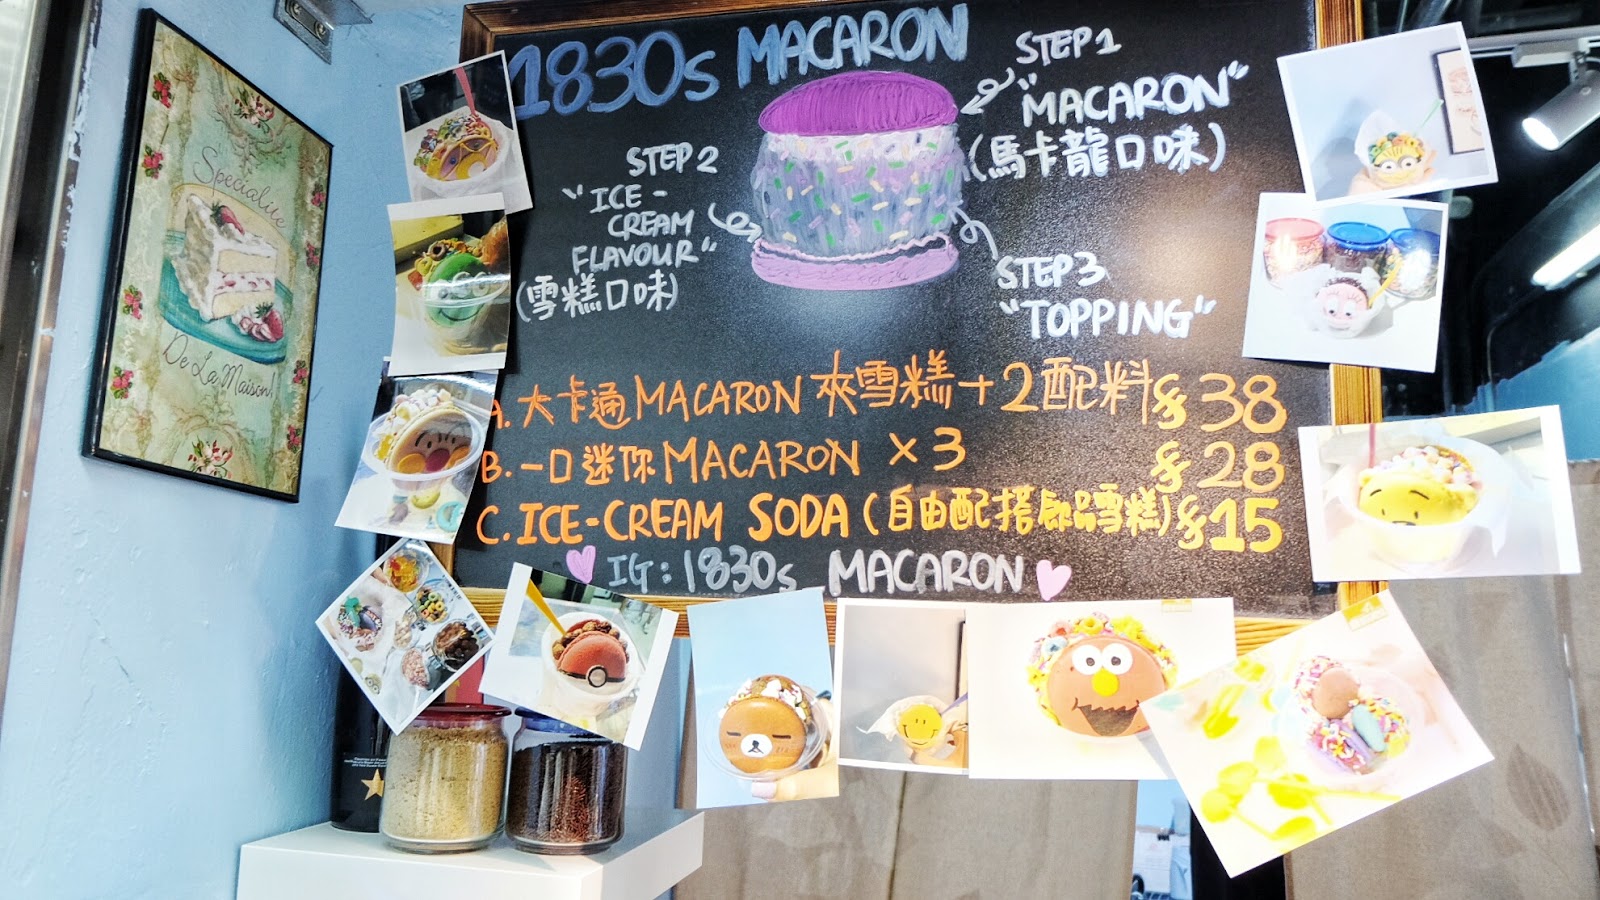 1830s MACARON
STEP 1
"MACARON"
(馬卡龍口味)
STEP 2
"ICE-
CREAM
FLAVOUR"
(雪糕口味)
STEP 3
"TOPPING"
A. 大卡通 MACARON 夾雪糕 + 2配料 $38
B. 一口迷你 MACARON × 3 $28
C. ICE-CREAM SODA (自由配搭飲品雪糕) $15
IG: 1830s MACARON
Specialite
De La Maison!